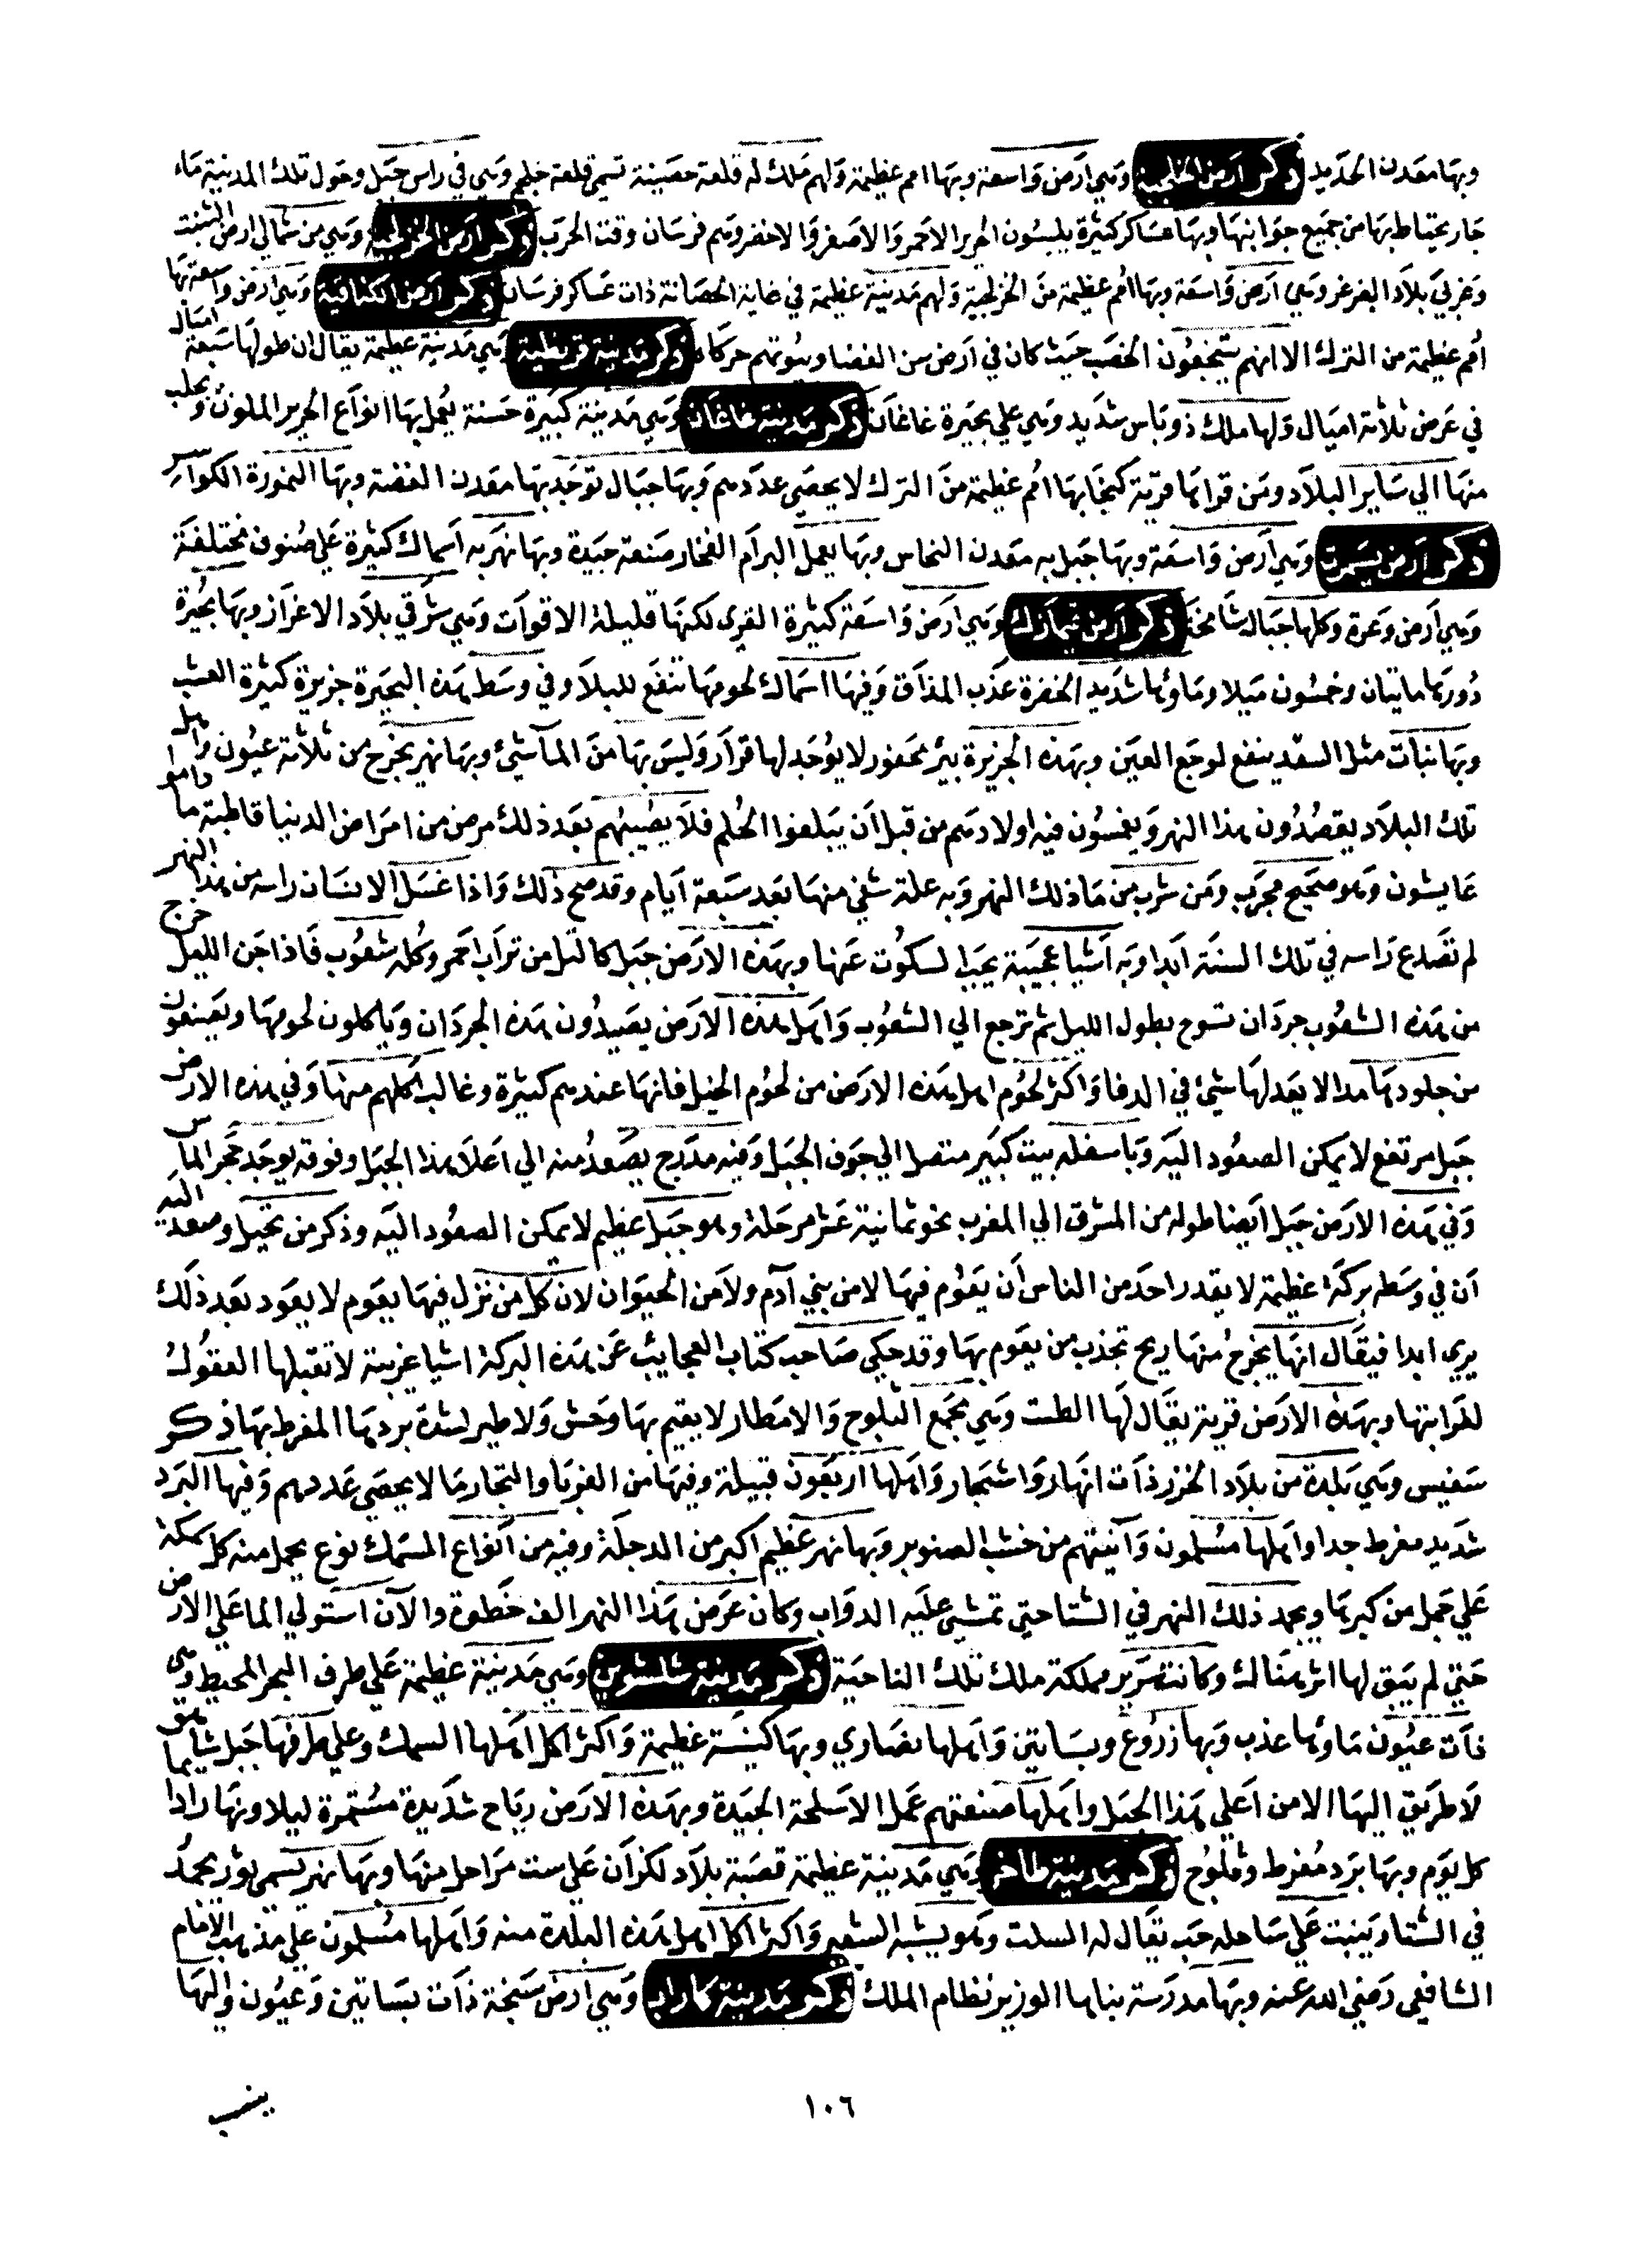 وبها معدن الحديد ذكر ارض الخلجية وهي ارض واسعة وبها امم عظيمة ولهم ملك له قلعة حصينة تسمي قلعة خيلم وهي في راس جبل وحول تلك المدينة ماء
جار يحتاط بها من جميع جوانبها وبها عساكر كثيرة يلبسون الحرير الاحمر والاصفر والاخضر وهم فرسان وقت الحرب ذكر ارض الخزلجية وهي من شمالي ارض التبت
وغربي بلاد البغرغر وهي ارض واسعة وبها امم عظيمة من الخزلجية ولهم مدينة عظيمة في غاية الحصانة ذات عساكر فرسان ذكر ارض الكيماكية وهي ارض واسعة بها
امم عظيمة من الترك الا انهم يتبعون الخصب حيث كان في ارض من الفضا وبيوتهم خركاه ذكر مدينة قرنطية وهي مدينة عظيمة يقال ان طولها سبعة اميال
في عرض ثلاثة اميال ولها ملك ذو باس شديد وهي علي بحيرة غاغان ذكر مدينة غاغان وهي مدينة كبيرة حسنة يعمل بها انواع الحرير الملون ويجلب
منها الي ساير البلاد ومن قراها قرية بها امم عظيمة من الترك لا يحصي عددهم وبها جبال توجد بها معدن الفضة وبها النمورة الكواسر
ذكر ارض وهي ارض واسعة وبها جبل به معدن النحاس وبها يعمل البرام الفخار صنعة جيدة وبها نهر به اسماك كثيرة علي صنوف مختلفة
وهي ارض وعرة وكلها جبال شامخة ذكر ارض وهي ارض واسعة كثيرة القري لكنها قليلة الاقوات وهي شرقي بلاد الاغزاز وبها بحيرة
دورها مايتان وخمسون ميلا وماؤها شديد الخضرة عذب المذاق وفيها اسماك لحومها تنفع للبلاد وفي وسط هذه البحيرة جزيرة كثيرة العشب
وبها نبات مثل السعد ينفع لوجع العين وبهذه الجزيرة بير محفور لا يوجد لها قرار وليس بها من الما شيئ وبها نهر يخرج من ثلاثة عيون واهل
تلك البلاد يقصدون هذا النهر ويغمسون فيه اولادهم من قبل ان يبلغوا الحلم فلا يصيبهم بعد ذلك مرض من امراض الدنيا قاطبة ما داموا
عايشون وهو صحيح مجرب ومن شرب من ماذلك النهر وبه علة شفي منها بعد سبعة ايام وقد صح ذلك واذا غسل الانسان راسه من هذا النهر
لم تصدع راسه في تلك السنة ابدا وبه اشيا عجيبة يجب السكوت عنها وبهذه الارض جبل كالتل من تراب احمر وكله شعوب فاذا جن الليل خرج
من هذه الشعوب جرذان تسوح بطول الليل ثم ترجع الي الشعوب واهل هذه الارض يصيدون هذه الجرذان وياكلون لحومها ويصنعون
من جلودها مدا لا يعدلها شيئ في الدفا واكثر لحوم اهل هذه الارض من لحوم الخيل فانها عندهم كثيرة وغالب اكلهم منها وفي هذه الارض
جبل مرتفع لا يمكن الصعود اليه وباسفله بيت كبير متصل الي جوف الجبل وفيه مدرج يصعد منه الي اعلا هذا الجبل وفوقه يوجد حجر الماس
وفي هذه الارض جبل ايضا طوله من المشرق الي المغرب نحو ثمانية عشر مرحلة وهو جبل عظيم لا يمكن الصعود اليه وذكر من تحيل وصعد اليه
ان في وسطه بركة عظيمة لا يقدر احد من الناس ان يعوم فيها لا من بني آدم ولا من الحيوان لان كل من نزل فيها يعوم لا يعود بعد ذلك
يري ابدا فيقال انها يخرج منها ريح تجذب من يعوم بها وقد حكي صاحب كتاب العجايب عن هذه البركة اشيا غريبة لا تقبلها العقول
لغرابتها وبهذه الارض قرية يقال لها الطست وهي مجمع الثلوج والامطار لا يقيم بها وحش ولا طير لشدة بردها المفرط بها ذكر
سقسين وهي بلدة من بلاد الخزر ذات انهار واشجار واهلها اربعون قبيلة وفيها من الغربا والتجار ما لا يحصي عددهم وفيها البرد
شديد مفرط جدا واهلها مسلمون وآنيتهم من خشب الصنوبر وبها نهر عظيم اكبر من الدجلة وفيه من انواع السمك نوع يحمل منه كل سمكة
علي جمل من كبرها ويجمد ذلك النهر في الشتا حتي تمشي عليه الدواب وكان عرض هذا النهر الف خطوة والآن استولي الما علي الارض
حتي لم يبق لها اثر هناك وكانت سرير مملكة ملك تلك الناحية ذكر مدينة وهي مدينة عظيمة علي طرف البحر المحيط وهي
ذات عيون ماؤها عذب وبها زروع وبساتين واهلها نصاري وبها كنيسة عظيمة واكثر اكل اهلها السمك وعلي طرفها جبل شاهق
لا طريق اليها الا من اعلي هذا الجبل واهلها صنعتهم عمل الاسلحة الجيدة وبهذه الارض رياح شديدة مستمرة ليلا ونهارا دايما
كل يوم وبها برد مفرط وثلوج ذكر مدينة طاخر وهي مدينة عظيمة قصبة بلاد لكزان علي ست مراحل منها وبها نهر يسمي بور يجمد
في الشتا وينبت علي ساحله حب يقال له السلت وهو يشبه الشعير واكثر اكل اهل هذه البلدة منه واهلها مسلمون علي مذهب الامام
الشافعي رضي الله عنه وبها مدرسة بناها الوزير نظام الملك ذكر مدينة فاراب وهي ارض سبخة ذات بساتين وعيون واليها
١٠٦
ينسب